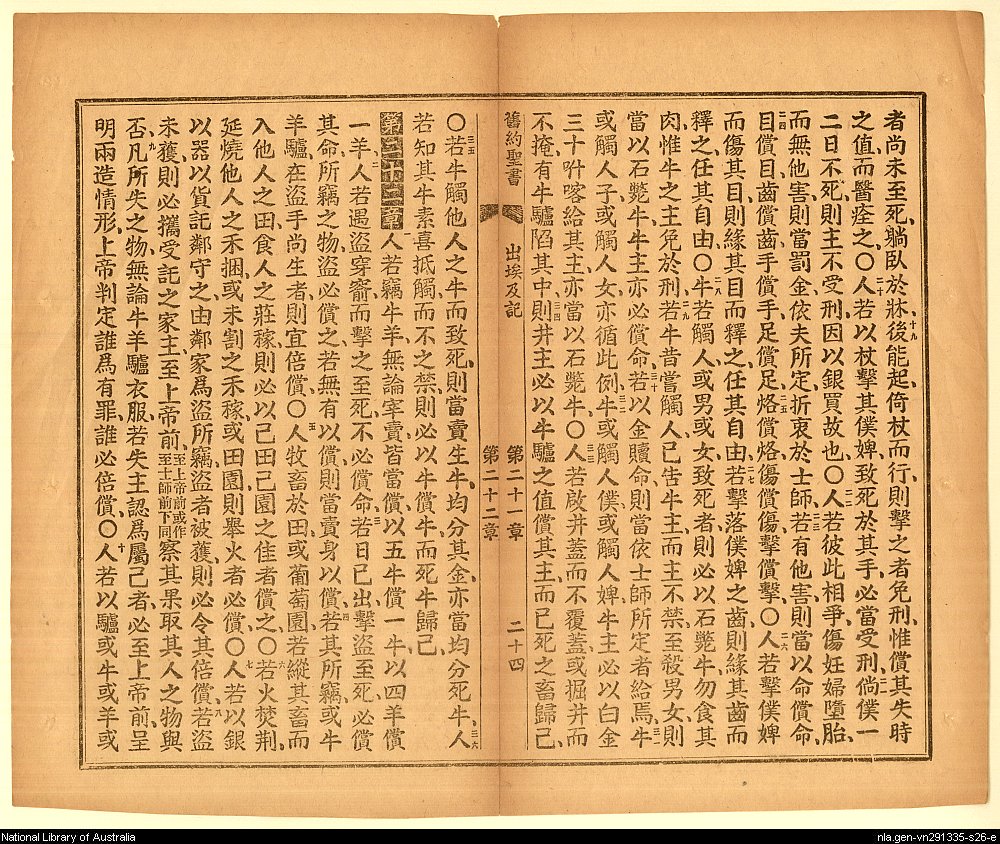 者尚未至死、躺臥於牀、十九後能起倚杖而行、則擊之者免刑、惟償其失時
之值、而醫痊之、〇二十人若以杖擊其僕婢、致死於其手、必當受刑、二一倘僕一
二日不死、則主不受刑、因以銀買故也、〇二二人若彼此相爭、傷妊婦墮胎、
而無他害、則當罰金、依夫所定、折衷於士師、二三若有他害、則當以命償命、
二四目償目、齒償齒、手償手、足償足、二五烙償烙、傷償傷、擊償擊、〇二六人若擊僕婢
而傷其目、則緣其目而釋之、任其自由、二七若擊落僕婢之齒、則緣其齒而
釋之、任其自由、〇二八牛若觸人、或男或女致死者、則必以石斃牛、勿食其
肉、惟牛之主免於刑、二九若牛昔嘗觸人、已告牛主、而主不禁、至殺男女、則
當以石斃牛、牛主亦必償命、三十若以金贖命、則當依士師所定者給焉、三一牛
或觸人子、或觸人女、亦循此例、三二牛或觸人僕、或觸人婢、牛主必以白金
三十吥喀給其主、亦當以石斃牛、〇三三人若啟井蓋而不覆蓋、或掘井而
不掩、有牛驢陷其中、三四則井主必以牛驢之值償其主、而已死之畜歸己、
舊約聖書 出埃及記 第二十一章 第二十二章 二十四
〇三五若牛觸他人之牛而致死、則當賣生牛、均分其金、亦當均分死牛、三六人
若知其牛素喜抵觸而不之禁、則必以牛償牛、而死牛歸己、
第二十二章 人若竊牛羊、無論宰賣、皆當償、以五牛償一牛、以四羊償
一羊、二人若遇盜穿窬、而擊之至死、不必償命、三若日已出、擊盜至死、必償
其命、所竊之物、盜必償之、若無有以償、則當賣身以償、四若其所竊、或牛
羊驢、在盜手尚生者、則宜倍償、〇五人牧畜於田、或葡萄園、若縱其畜而
入他人之田、食人之莊稼、則必以己田己園之佳者償之、〇六若火焚荊、
延燒他人之禾捆、或未割之禾稼、或田園、則舉火者必償、〇七人若以銀
以器以貨託鄰守之、由鄰家為盜所竊、盜者被獲、則必令其倍償、八若盜
未獲、則必攜受託之家主至上帝前、至上帝前或作至士師前下同察其果取其人之物與
否、九凡所失之物、無論牛羊驢衣服、若失主認為屬己者、必至上帝前、呈
明兩造情形、上帝判定誰為有罪、誰必倍償、〇十人若以驢或牛或羊或
National Library of Australia
nla.gen-vn291335-s26-e